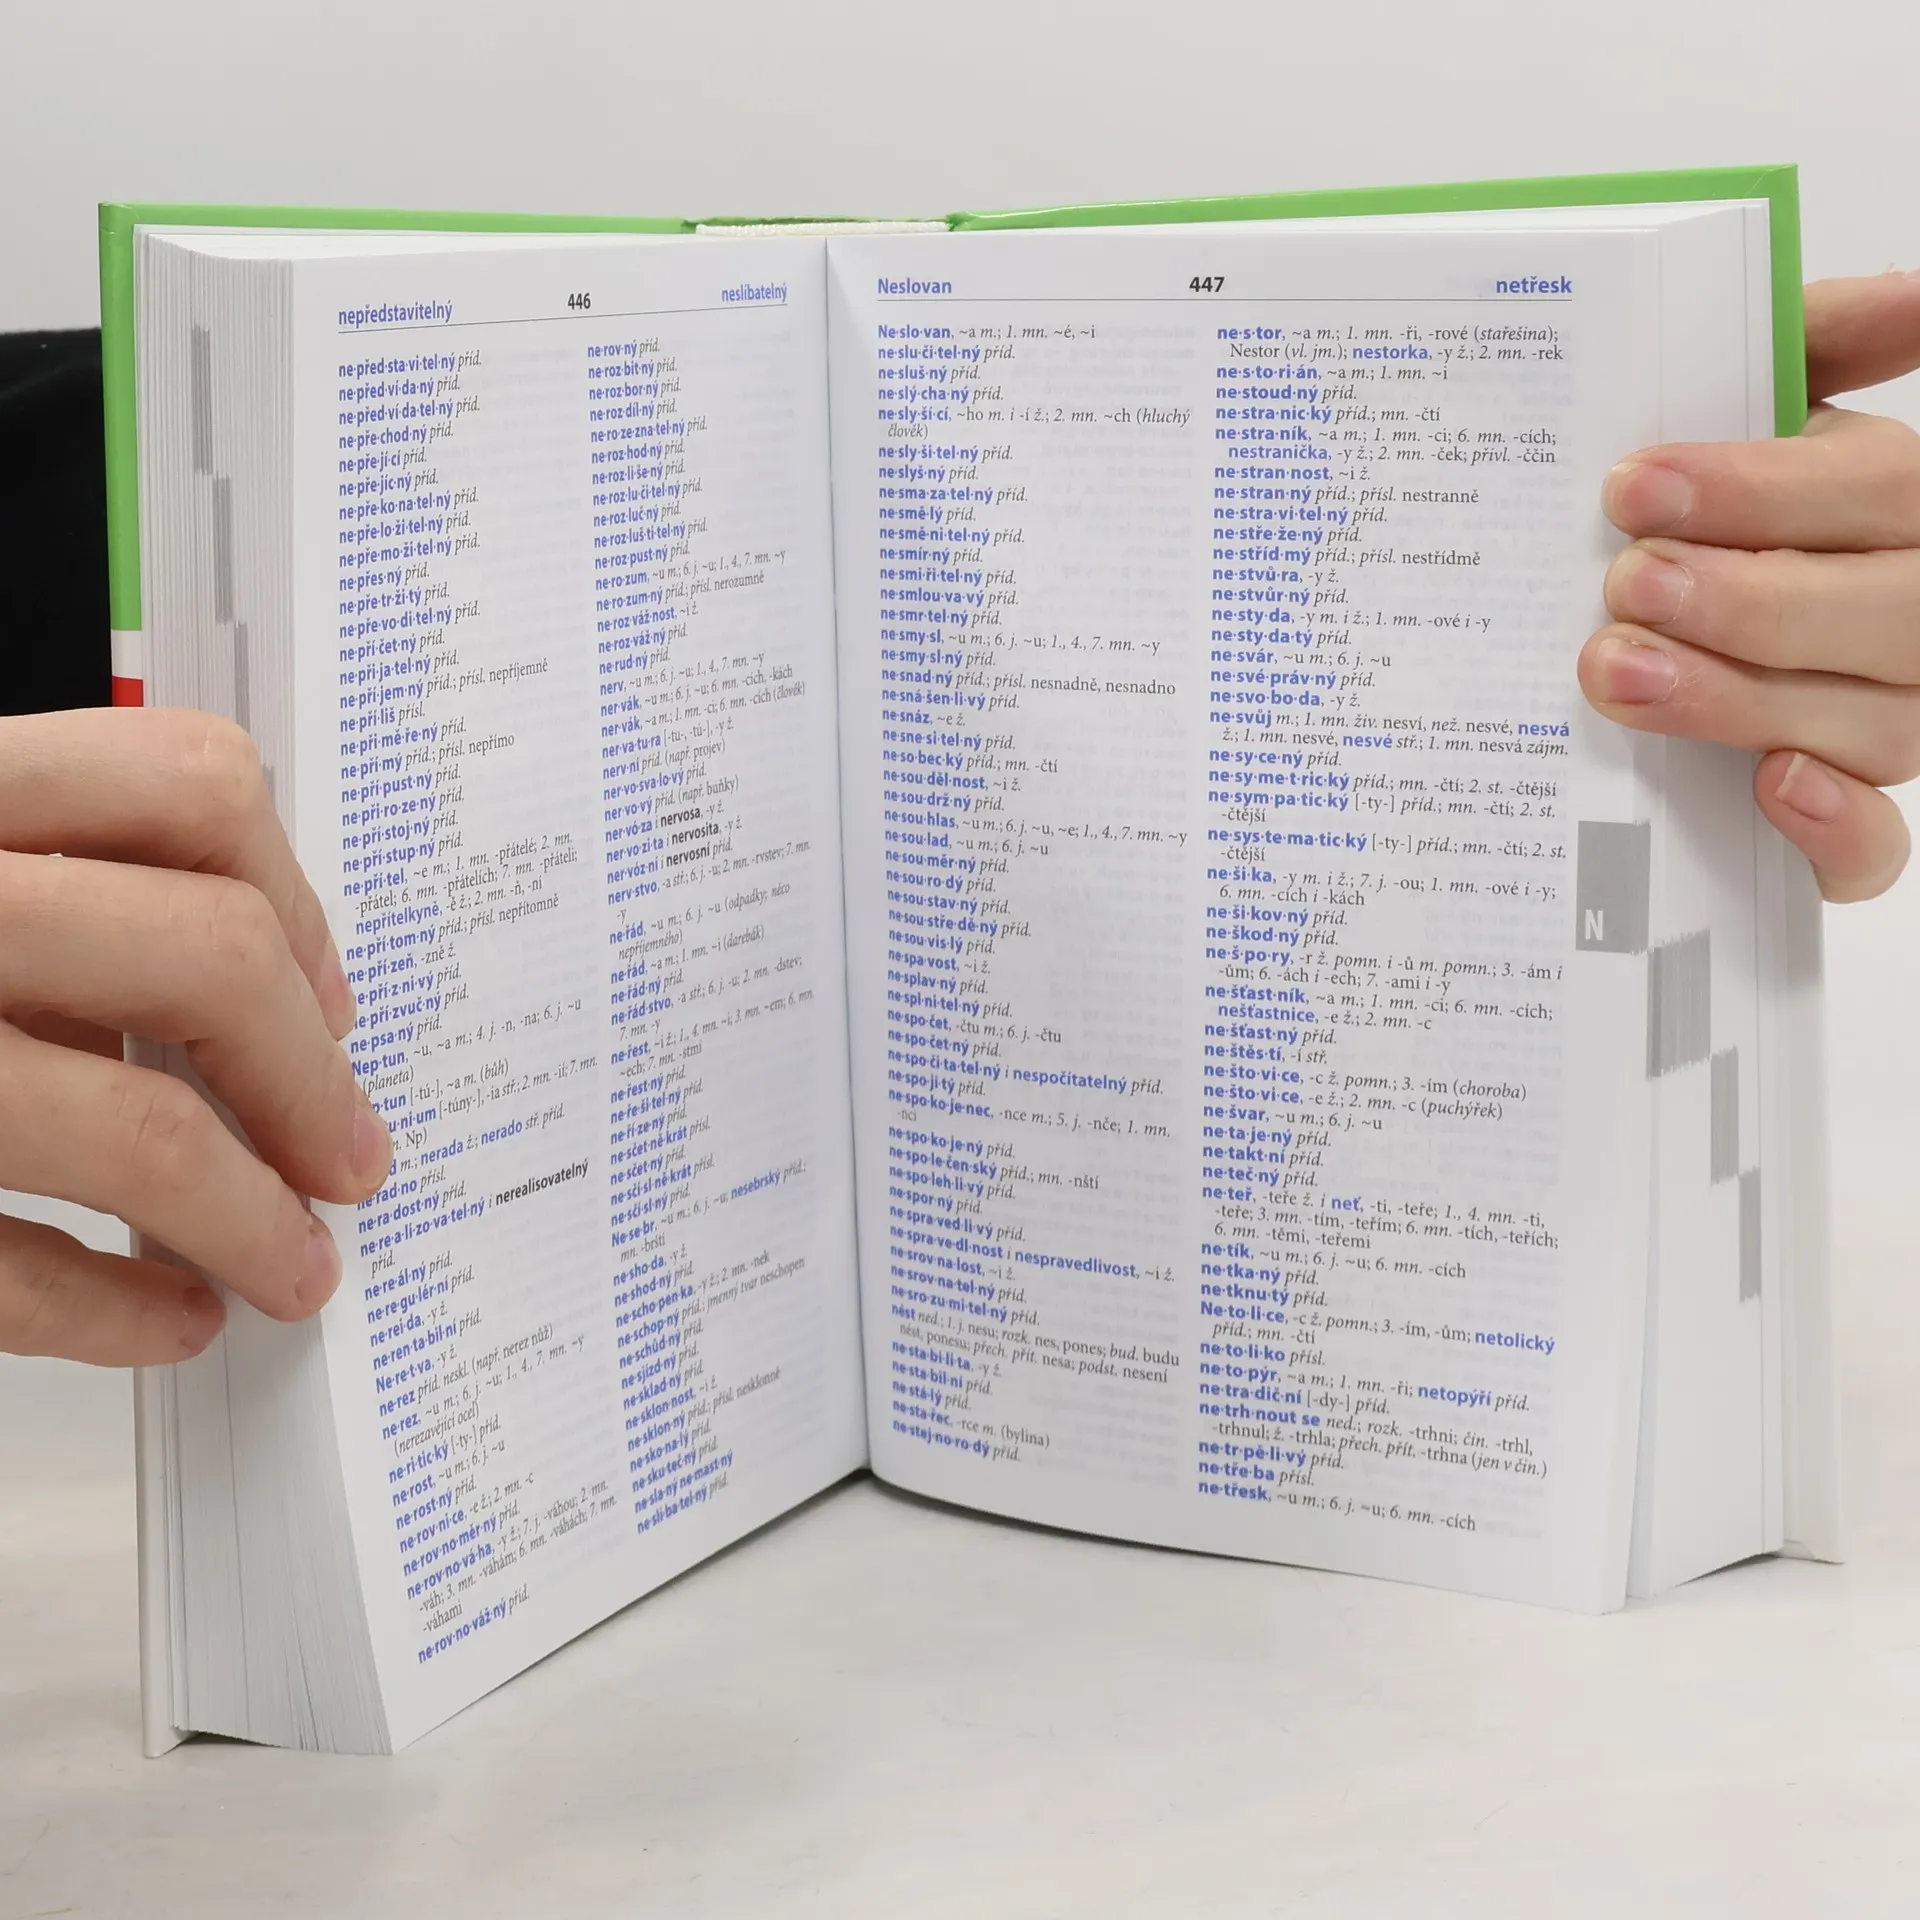 nepředstavitelný 446 neslíbatelný
ne·před·sta·vi·tel·ný příd.
ne·před·ví·da·ný příd.
ne·před·ví·da·tel·ný příd.
ne·pře·chod·ný příd.
ne·pře·jí·cí příd.
ne·pře·jíc·ný příd.
ne·pře·ko·na·tel·ný příd.
ne·pře·lo·ži·tel·ný příd.
ne·pře·mo·ži·tel·ný příd.
ne·přes·ný příd.
ne·pře·tr·ži·tý příd.
ne·pře·vo·di·tel·ný příd.
ne·pří·čet·ný příd.
ne·při·ja·tel·ný příd.
ne·pří·jem·ný příd.; přísl. nepříjemně
ne·pří·liš přísl.
ne·při·mě·ře·ný příd.
ne·pří·mý příd.; přísl. nepřímo
ne·pří·pust·ný příd.
ne·při·ro·ze·ný příd.
ne·pří·stoj·ný příd.
ne·pří·stup·ný příd.
ne·pří·tel, ~e m.; 1. mn. -přátelé; 2. mn.
-přátel; 6. mn. -přátelích; 7. mn. -přáteli;
nepřítelkyně, -ě ž.; 2. mn. -ň, -ní
ne·pří·tom·ný příd.; přísl. nepřítomně
ne·pří·zeň, -zně ž.
ne·pří·z·ni·vý příd.
ne·pří·zvuč·ný příd.
ne·psa·ný příd.
Nep·tun, ~u, ~a m.; 4. j. -n, -na; 6. j. ~u
(planeta)
tun [-tú-], ~a m. (bůh)
u·ni·um [-túny-], -ia stř.; 2. mn. -ií; 7. mn.
Np)
d m.; nerada ž.; nerado stř. příd.
ne·rad·no přísl.
ne·ra·dost·ný příd.
ne·re·a·li·zo·va·tel·ný i nerealisovatelný
příd.
ne·re·ál·ný příd.
ne·re·gu·lér·ní příd.
ne·rei·da, -y ž.
ne·ren·ta·bil·ní příd.
Ne·re·t·va, -y ž.
ne·rez příd. neskl. (např. nerez nůž)
ne·rez, ~u m.; 6. j. ~u; 1., 4., 7. mn. ~y
(nerezavějící ocel)
ne·ri·tic·ký [-ty-] příd.
ne·rost, ~u m.; 6. j. ~u
ne·rost·ný příd.
ne·rov·ni·ce, -e ž.; 2. mn. -c
ne·rov·no·měr·ný příd.
ne·rov·no·vá·ha, -y ž.; 7. j. -váhou; 2. mn.
-váh; 3. mn. -váhám; 6. mn. -váhách; 7. mn.
-váhami
ne·rov·no·váž·ný příd.
ne·rov·ný příd.
ne·roz·bit·ný příd.
ne·roz·bor·ný příd.
ne·roz·díl·ný příd.
ne·ro·ze·zna·tel·ný příd.
ne·roz·hod·ný příd.
ne·roz·li·še·ný příd.
ne·roz·lu·či·tel·ný příd.
ne·roz·luč·ný příd.
ne·roz·luš·ti·tel·ný příd.
ne·roz·pust·ný příd.
ne·ro·zum, ~u m.; 6. j. ~u; 1., 4., 7. mn. ~y
ne·ro·zum·ný příd.; přísl. nerozumně
ne·roz·váž·nost, ~i ž.
ne·roz·váž·ný příd.
ne·rud·ný příd.
nerv, ~u m.; 6. j. ~u; 1., 4., 7. mn. ~y
ner·vák, ~u m.; 6. j. ~u; 6. mn. -cích, -kách
ner·vák, ~a m.; 1. mn. -ci; 6. mn. -cích (člověk)
ner·va·tu·ra [-tu-, -tú-], -y ž.
nerv·ní příd. (např. projev)
ner·vo·sva·lo·vý příd.
ner·vo·vý příd. (např. buňky)
ner·vó·za i nervosa, -y ž.
ner·vo·zi·ta i nervosita, -y ž.
ner·vóz·ní i nervosní příd.
nerv·stvo, -a stř.; 6. j. -u; 2. mn. -rvstev; 7. mn.
-y
ne·řád, ~u m.; 6. j. ~u (odpadky; něco
nepříjemného)
ne·řád, ~a m.; 1. mn. ~i (darebák)
ne·řád·ný příd.
ne·řád·stvo, -a stř.; 6. j. -u; 2. mn. -dstev;
7. mn. -y
ne·řest, ~i ž.; 1., 4. mn. ~i; 3. mn. ~em; 6. mn.
~ech; 7. mn. -stmi
ne·řest·ný příd.
ne·ře·ši·tel·ný příd.
ne·ří·ze·ný příd.
ne·sčet·ně·krát přísl.
ne·sčet·ný příd.
ne·sčí·sl·ně·krát přísl.
ne·sčí·sl·ný příd.
Ne·se·br, ~u m.; 6. j. ~u; nesebrský příd.;
mn. -brští
ne·sho·da, -y ž.
ne·shod·ný příd.
ne·scho·pen·ka, -y ž.; 2. mn. -nek
ne·schop·ný příd.; jmenný tvar neschopen
ne·schůd·ný příd.
ne·sjízd·ný příd.
ne·sklad·ný příd.
ne·sklon·nost, ~i ž.
ne·sklon·ný příd.; přísl. nesklonně
ne·sko·na·lý příd.
ne·sku·teč·ný příd.
ne·sla·ný ne·mast·ný
ne·slí·ba·tel·ný příd.
Neslovan 447 netřesk
Ne·slo·van, ~a m.; 1. mn. ~é, ~i
ne·slu·či·tel·ný příd.
ne·sluš·ný příd.
ne·slý·cha·ný příd.
ne·sly·ší·cí, ~ho m. i -í ž.; 2. mn. ~ch (hluchý
člověk)
ne·sly·ši·tel·ný příd.
ne·slyš·ný příd.
ne·sma·za·tel·ný příd.
ne·smě·lý příd.
ne·smě·ni·tel·ný příd.
ne·smír·ný příd.
ne·smi·ři·tel·ný příd.
ne·smlou·va·vý příd.
ne·smr·tel·ný příd.
ne·smy·sl, ~u m.; 6. j. ~u; 1., 4., 7. mn. ~y
ne·smy·sl·ný příd.
ne·snad·ný příd.; přísl. nesnadně, nesnadno
ne·sná·šen·li·vý příd.
ne·snáz, ~e ž.
ne·sne·si·tel·ný příd.
ne·so·bec·ký příd.; mn. -čtí
ne·sou·děl·nost, ~i ž.
ne·sou·drž·ný příd.
ne·sou·hlas, ~u m.; 6. j. ~u, ~e; 1., 4., 7. mn. ~y
ne·sou·lad, ~u m.; 6. j. ~u
ne·sou·měr·ný příd.
ne·sou·ro·dý příd.
ne·sou·stav·ný příd.
ne·sou·stře·dě·ný příd.
ne·sou·vis·lý příd.
ne·spa·vost, ~i ž.
ne·splav·ný příd.
ne·spl·ni·tel·ný příd.
ne·spo·čet, -čtu m.; 6. j. -čtu
ne·spo·čet·ný příd.
ne·spo·či·ta·tel·ný i nespočítatelný příd.
ne·spo·ji·tý příd.
ne·spo·ko·je·nec, -nce m.; 5. j. -nče; 1. mn.
-nci
ne·spo·ko·je·ný příd.
ne·spo·le·čen·ský příd.; mn. -nští
ne·spo·leh·li·vý příd.
ne·spor·ný příd.
ne·spra·ved·li·vý příd.
ne·spra·ve·dl·nost i nespravedlivost, ~i ž.
ne·srov·na·lost, ~i ž.
ne·srov·na·tel·ný příd.
ne·sro·zu·mi·tel·ný příd.
nést ned.; 1. j. nesu; rozk. nes, pones; bud. budu
nést, ponesu; přech. přít. nesa; podst. nesení
ne·sta·bi·li·ta, -y ž.
ne·sta·bil·ní příd.
ne·stá·lý příd.
ne·sta·řec, -rce m. (bylina)
ne·stej·no·ro·dý příd.
ne·s·tor, ~a m.; 1. mn. -ři, -rové (stařešina);
Nestor (vl. jm.); nestorka, -y ž.; 2. mn. -rek
ne·s·to·ri·án, ~a m.; 1. mn. ~i
ne·stoud·ný příd.
ne·stra·nic·ký příd.; mn. -čtí
ne·stra·ník, ~a m.; 1. mn. -ci; 6. mn. -cích;
nestranička, -y ž.; 2. mn. -ček; přivl. -ččin
ne·stran·nost, ~i ž.
ne·stran·ný příd.; přísl. nestranně
ne·stra·vi·tel·ný příd.
ne·stře·že·ný příd.
ne·stříd·mý příd.; přísl. nestřídmě
ne·stvů·ra, -y ž.
ne·stvůr·ný příd.
ne·sty·da, -y m. i ž.; 1. mn. -ové i -y
ne·sty·da·tý příd.
ne·svár, ~u m.; 6. j. ~u
ne·své·práv·ný příd.
ne·svo·bo·da, -y ž.
ne·svůj m.; 1. mn. živ. nesví, než. nesvé, nesvá
ž.; 1. mn. nesvé, nesvé stř.; 1. mn. nesvá zájm.
ne·sy·ce·ný příd.
ne·sy·me·t·ric·ký příd.; mn. -čtí; 2. st. -čtější
ne·sym·pa·tic·ký [-ty-] příd.; mn. -čtí; 2. st.
-čtější
ne·sys·te·ma·tic·ký [-ty-] příd.; mn. -čtí; 2. st.
-čtější
ne·ši·ka, -y m. i ž.; 7. j. -ou; 1. mn. -ové i -y;
6. mn. -cích i -kách
ne·ši·kov·ný příd.
ne·škod·ný příd.
ne·š·po·ry, -r ž. pomn. i -ů m. pomn.; 3. -ám i
-ům; 6. -ách i -ech; 7. -ami i -y
ne·šťast·ník, ~a m.; 1. mn. -ci; 6. mn. -cích;
nešťastnice, -e ž.; 2. mn. -c
ne·šťast·ný příd.
ne·štěs·tí, -í stř.
ne·što·vi·ce, -c ž. pomn.; 3. -ím (choroba)
ne·što·vi·ce, -e ž.; 2. mn. -c (puchýřek)
ne·švar, ~u m.; 6. j. ~u
ne·ta·je·ný příd.
ne·takt·ní příd.
ne·teč·ný příd.
ne·teř, -teře ž. i neť, -ti, -teře; 1., 4. mn. -ti,
-teře; 3. mn. -tím, -teřím; 6. mn. -tích, -teřích;
6. mn. -těmi, -teřemi
ne·tík, ~u m.; 6. j. ~u; 6. mn. -cích
ne·tka·ný příd.
ne·tknu·tý příd.
Ne·to·li·ce, -c ž. pomn.; 3. -ím, -ům; netolický
příd.; mn. -čtí
ne·to·li·ko přísl.
ne·to·pýr, ~a m.; 1. mn. -ři; netopýří příd.
ne·tra·dič·ní [-dy-] příd.
ne·trh·nout se ned.; rozk. -trhni; čin. -trhl,
-trhnul; ž. -trhla; přech. přít. -trhna (jen v čin.)
ne·tr·pě·li·vý příd.
ne·tře·ba přísl.
ne·třesk, ~u m.; 6. j. ~u; 6. mn. -cích
N